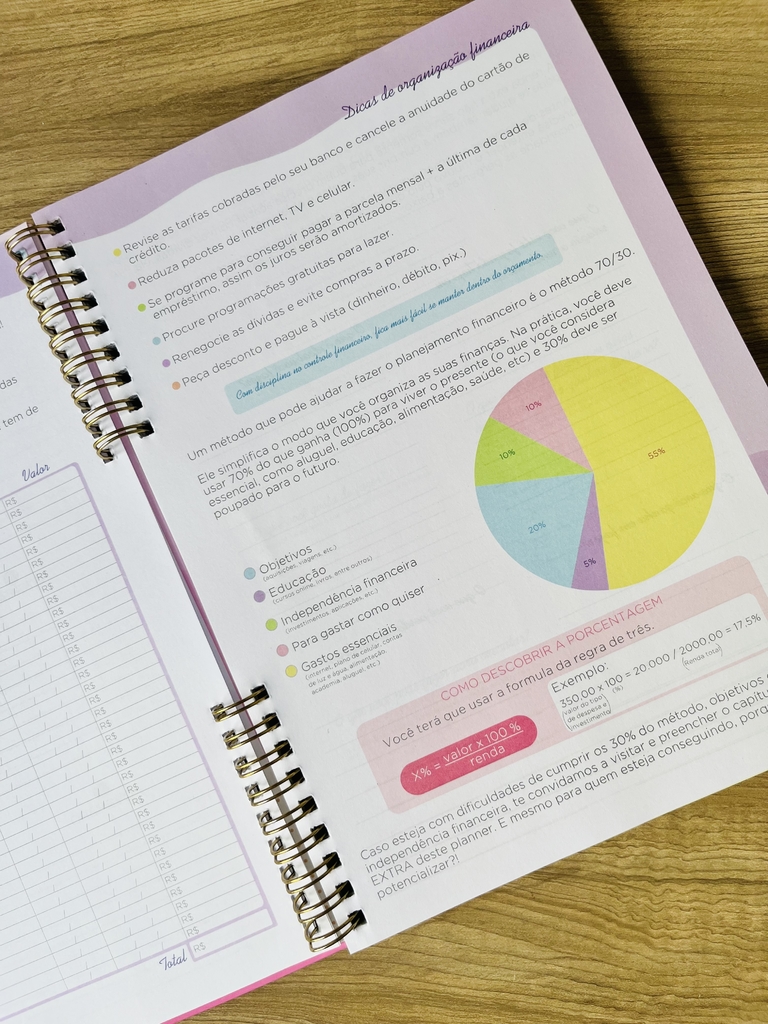 das
tem de
Valor
R$
R$
R$
R$
R$
R$
R$
R$
R$
R$
R$
R$
R$
R$
R$
R$
R$
R$
R$
R$
R$
R$
R$
R$
R$
R$
R$
R$
R$
R$
R$
R$
R$
R$
Total
R$
Dicas de organização financeira
Revise as tarifas cobradas pelo seu banco e cancele a anuidade do cartão de
crédito.
Reduza pacotes de internet, TV e celular.
Se programe para conseguir pagar a parcela mensal + a última de cada
empréstimo, assim os juros serão amortizados.
Procure programações gratuitas para lazer.
Renegocie as dívidas e evite compras a prazo.
Peça desconto e pague à vista (dinheiro, débito, pix.)
Com disciplina no controle financeiro, fica mais fácil se manter dentro do orçamento.
Um método que pode ajudar a fazer o planejamento financeiro é o método 70/30.
Ele simplifica o modo que você organiza as suas finanças. Na prática, você deve
usar 70% do que ganha (100%) para viver o presente (o que você considera
essencial, como aluguel, educação, alimentação, saúde, etc) e 30% deve ser
poupado para o futuro.
10%
10%
55%
20%
5%
Objetivos
(aquisições, viagens, etc.)
Educação
(cursos online, livros, entre outros)
Independência financeira
(investimentos, aplicações, etc.)
Para gastar como quiser
Gastos essenciais
(internet, plano de celular, contas
de luz e água, alimentação,
academia, aluguel, etc.)
COMO DESCOBRIR A PORCENTAGEM
Você terá que usar a formula da regra de três.
X% = valor x 100 %
renda
Exemplo:
350,00 x 100 = 20.000 / 2000.00 = 17,5%
(valor do tipo (%) (Renda total)
de despesa e
investimento)
Caso esteja com dificuldades de cumprir os 30% do método, objetivos
independência financeira, te convidamos a visitar e preencher o capítu
EXTRA deste planner. E mesmo para quem esteja conseguindo, porq
potencializar?!